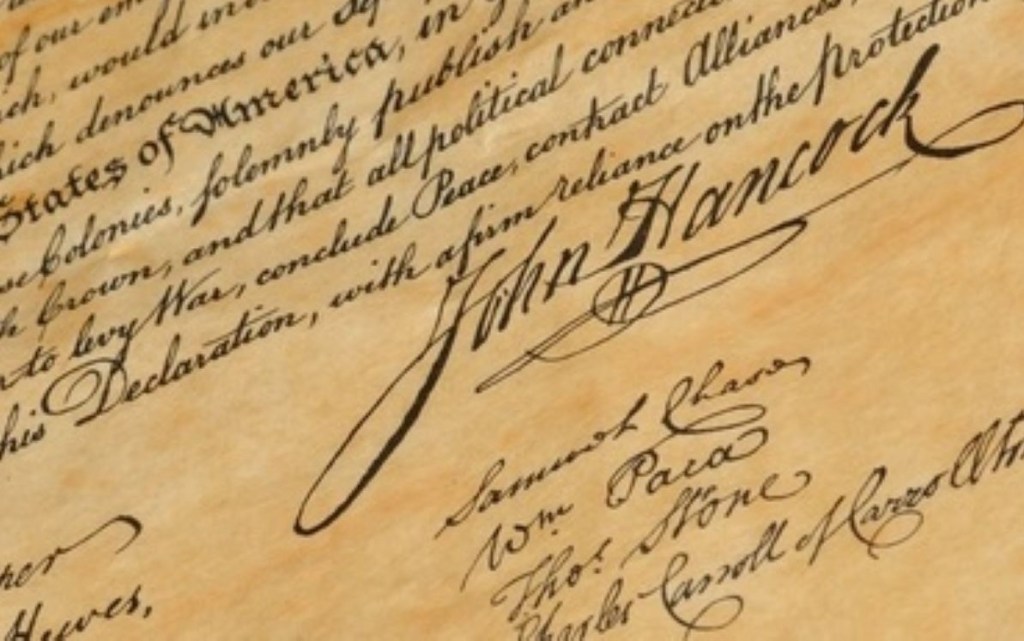 of our
would in
which denounces our Sep
States of America, in
Colonies, solemnly publish an
Crown, and that all political connecti
to levy War, conclude Peace, contract Alliances,
his Declaration, with a firm reliance on the protection
John Hancock
Samuel Chase
Wm Paca
Thos. Stone
Charles Carroll of Carrollton
Hewes,